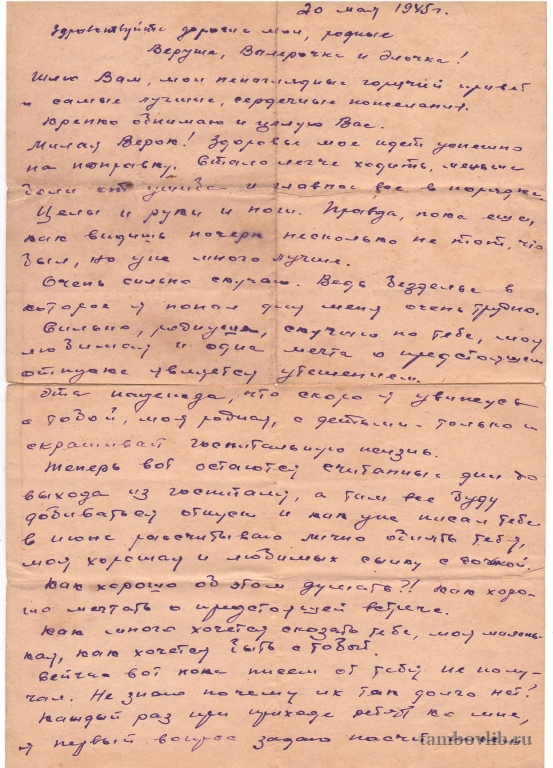 20 мая 1945 г.
Здравствуйте дорогие мои, родные
Веруша, Валерочка и Элочка!
Шлю Вам, мои ненаглядные горячий привет
и самые лучшие, сердечные пожелания.
Крепко обнимаю и целую Вас.
Милая Верок! Здоровье мое идет успешно
на поправку. Стало легче ходить, меньше
боли от ушиба и главное все в порядке.
Целы и руки и ноги. Правда, пока еще,
как видишь почерк несколько не тот, что
был, но уже много лучше.
Очень сильно скучаю. Ведь безделье в
которое я попал для меня очень трудно.
Сильно, скучаю по тебе, моя
любимая и одна мечта о предстоящем
отпуске является утешением.
Эта надежда, что скоро я увижусь
с тобой, моя родная, с детьми только и
скрашивает госпитальную жизнь.
Теперь вот остаются считанные дни до
выхода из госпиталя, а там все буду
добиваться отпуск и как уже писал тебе
в июне рассчитываю лично обнять тебя,
моя хорошая и любимых сынку с дочкой.
Как хорошо об этом думать?! Как хоро-
шо мечтать о предстоящей встрече.
Как много хочется сказать тебе, моя малень-
кая, как хочется быть с тобой.
Сейчас вот пока писем от тебя не полу-
чал. Не знаю почему их так долго нет?
Каждый раз при приходе ребят ко мне,
я первый вопрос задаю насчет писем
tambovlib.ru